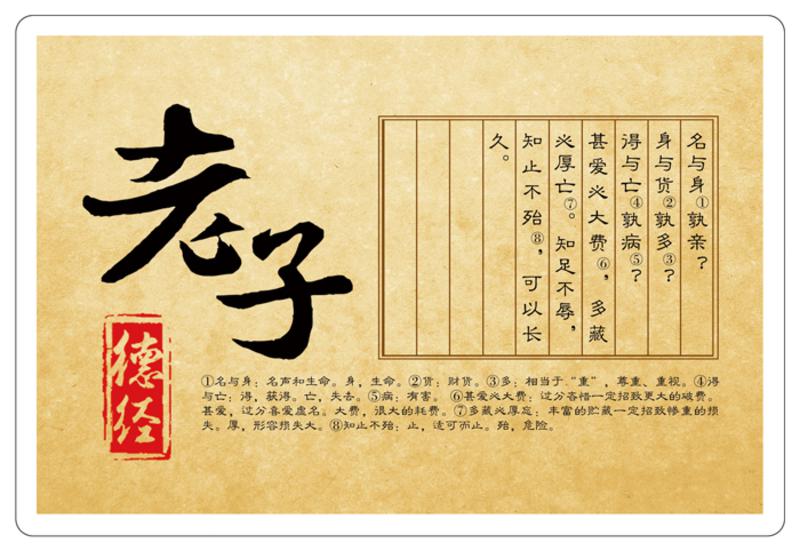 老子
德经
名与身①孰亲？
身与货②孰多③？
得与亡④孰病⑤？
甚爱必大费⑥，多藏
必厚亡⑦。知足不辱，
知止不殆⑧，可以长
久。
①名与身：名声和生命。身，生命。②货：财货。③多：相当于“重”，尊重、重视。④得
与亡：得，获得。亡，失去。⑤病：有害。⑥甚爱必大费：过分吝惜一定招致更大的破费。
甚爱，过分喜爱虚名。大费，很大的耗费。⑦多藏必厚忘：丰富的贮藏一定招致惨重的损
失。厚，形容损失大。⑧知止不殆：止，适可而止。殆，危险。